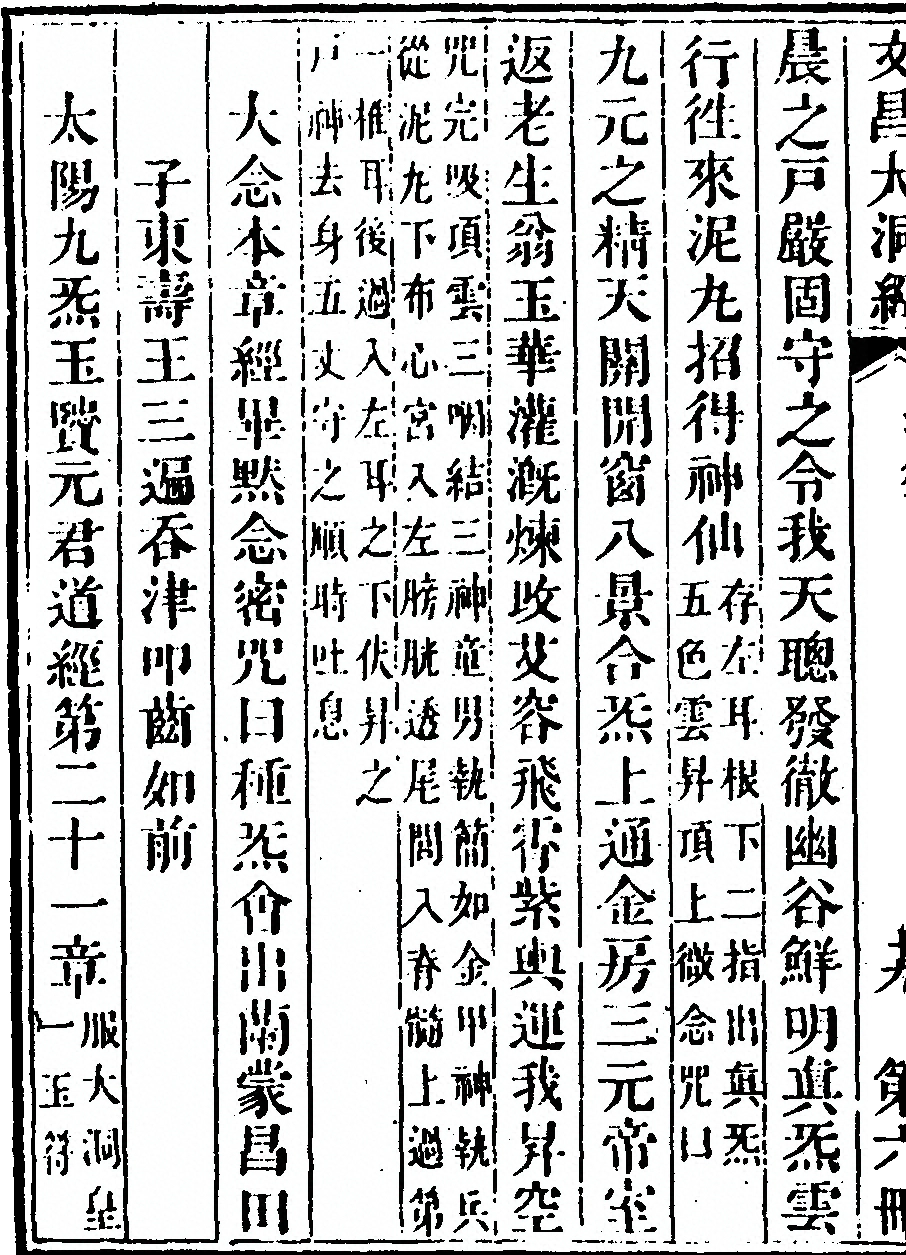 文昌大洞經
第六冊
晨之戸嚴固守之令我天聰發徹幽谷鮮明真炁雲
行往來泥九招得神仙
存左耳根下二指出真炁
五色雲昇頂上微念咒曰
九元之精天關開窗八景合炁上通金房三元帝室
返老生翁玉華灌溉煉改艾容飛霄紫輿運我昇空
咒完吸頂雲三咽結三神童男執簡如金甲神執兵
從泥九下布心宮入左膀胱透尾閭入脊髓上過第
一椎耳後過入左耳之下伏昇之
戸神去身五丈守之順時吐息
大念本章經畢黙念密咒曰種炁會出蘭蒙昌田
子東壽王三遍吞津叩齒如前
太陽九炁玉賢元君道經第二十一章
服大洞皇
一玉符